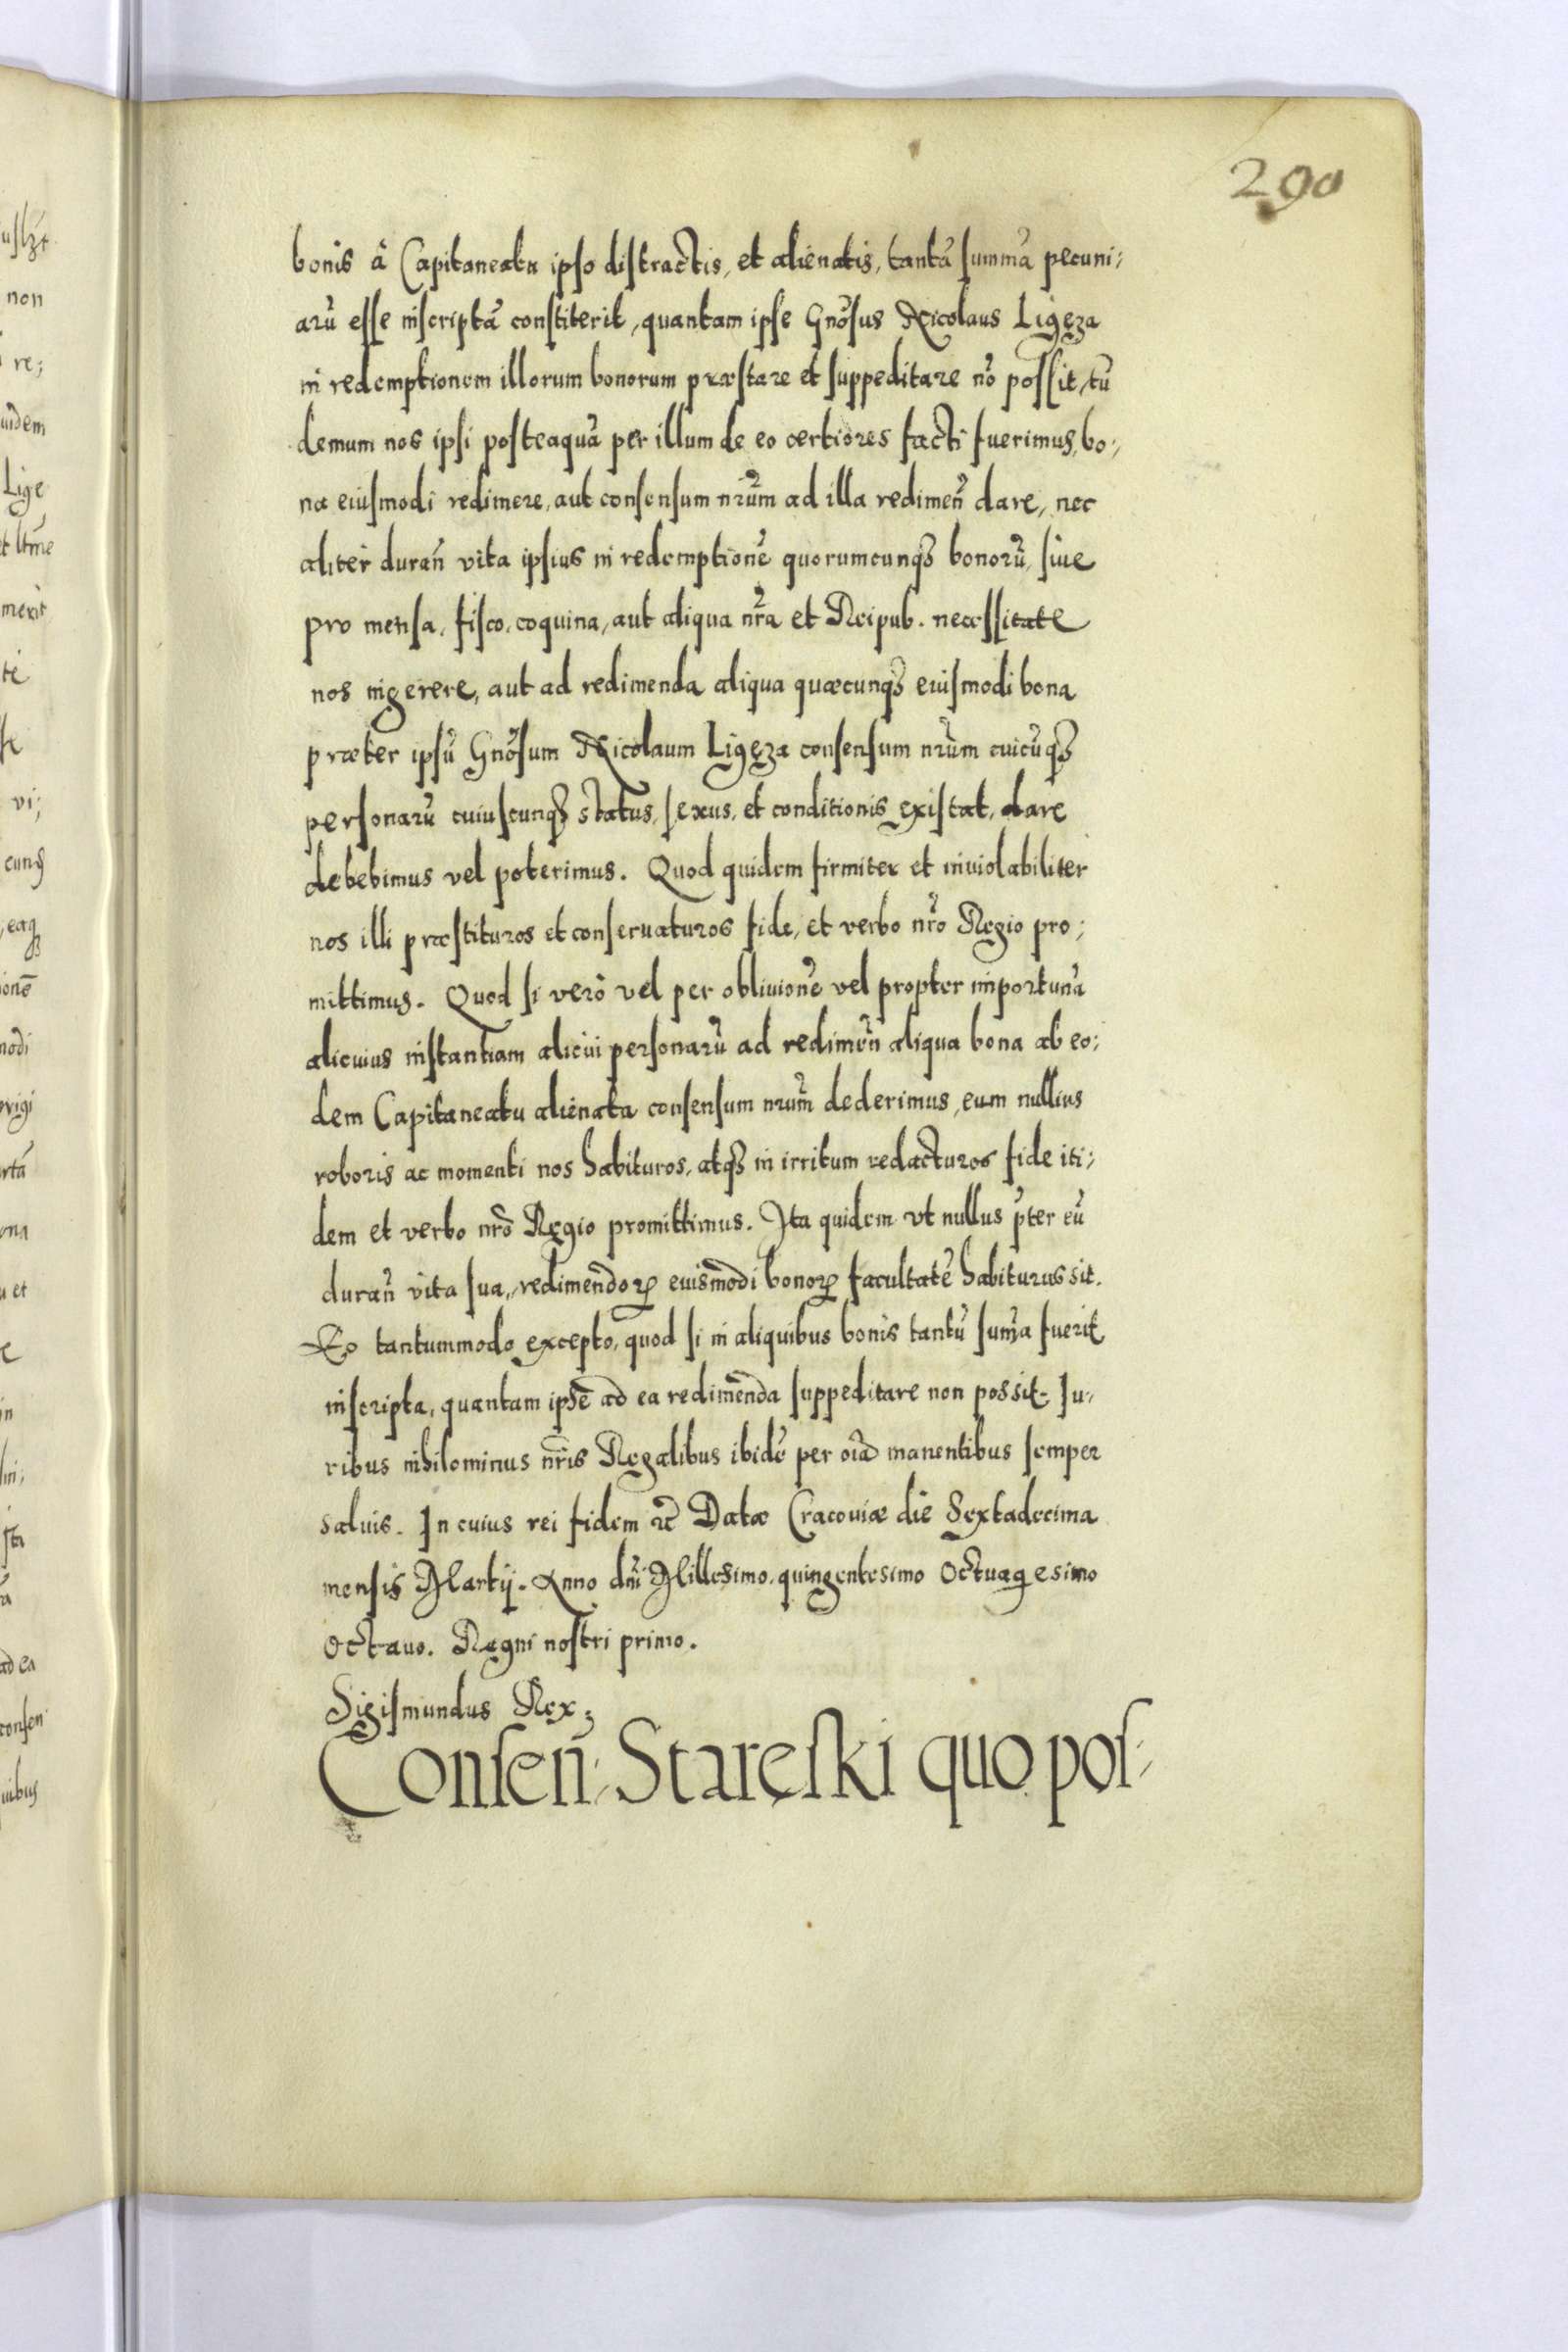 290
bonis â Capitaneatu ipso distractis, et alienatis, tantã summã pecuni⸗
arũ esse inscriptã constiterit, quantam ipse Gnõsus Nicolaus Ligęza
in redemptionem illorum bonorum præstare et suppeditare nõ possit, tũ
demum nos ipsi posteaquã per illum de eo certiores facti fuerimus, bo⸗
na eiusmodi redimere, aut consensum nrũm ad illa redimeñ dare, nec
aliter durañ vita ipsius in redemptionẽ quorumcunqʒ bonorũ, siue
pro mensa, fisco, coquina, aut aliqua nrã et Reipub. necessitate
nos ingerere, aut ad redimenda aliqua quæcunqʒ eiusmodi bona
præter ipsũ Gnõsum Nicolaum Ligęza consensum nrũm cuicũqʒ
personarũ cuiuscunqʒ status, sexus, et conditionis existat, dare
debebimus vel poterimus. Quod quidem firmiter et inuiolabiliter
nos illi præstituros et conseruaturos fide, et verbo nrõ Regio pro⸗
mittimus. Quod si verò vel per obliuionẽ vel propter importunã
alicuius instantiam alicui personarũ ad redimeñ aliqua bona ab eo⸗
dem Capitaneatu alienata consensum nrũm dederimus, eum nullius
roboris ac momenti nos habituros, atqʒ in irritum redacturos fide iti⸗
dem et verbo nrõ Regio promittimus. Ita quidem vt nullus p̃ter eũ
durañ vita sua, redimendoꝝ eiusmodi bonoꝝ facultatẽ habiturus sit.
Eo tantummodo excepto, quod si in aliquibus bonis tantũ sum̃a fuerit
inscripta, quantam ipse ad ea redimenda suppeditare non possit. Iu⸗
ribus nihilominus nrĩs Regalibus ibidẽ per oiã manentibus semper
saluis. In cuius rei fidem ꝛc̃ Datæ Cracouiæ die Sextadecima
mensis Martij. Anno dnĩ Millesimo. quingentesimo Octuagesimo
Octauo. Regni nostri primo.
Sigismundus Rex.
Conseñ: Staręski quo pos⸗